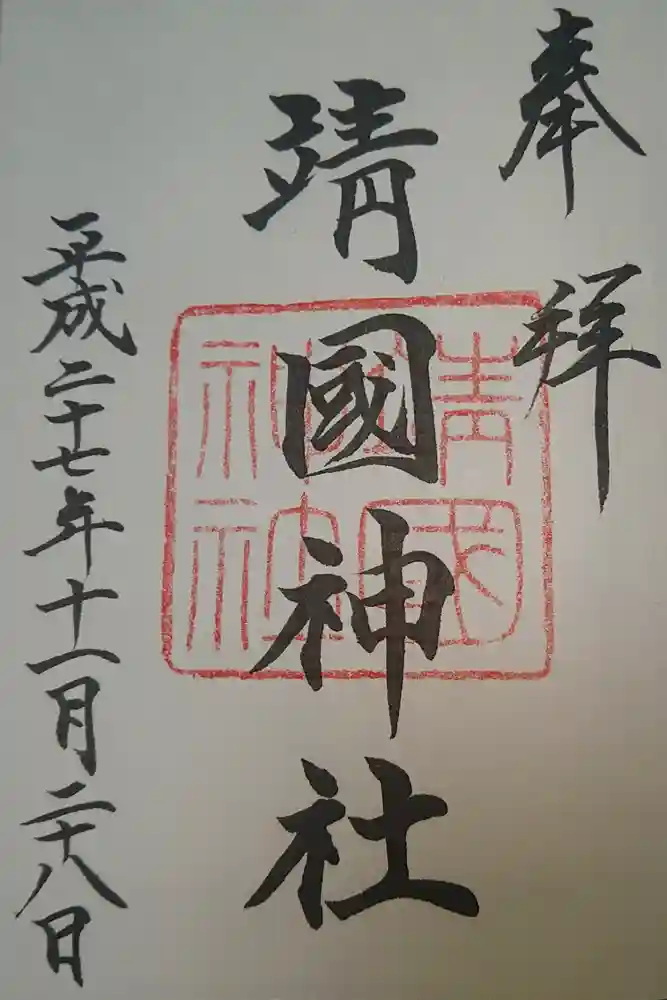 奉拝
靖國神社
靖國神社
平成二十七年十一月二十八日